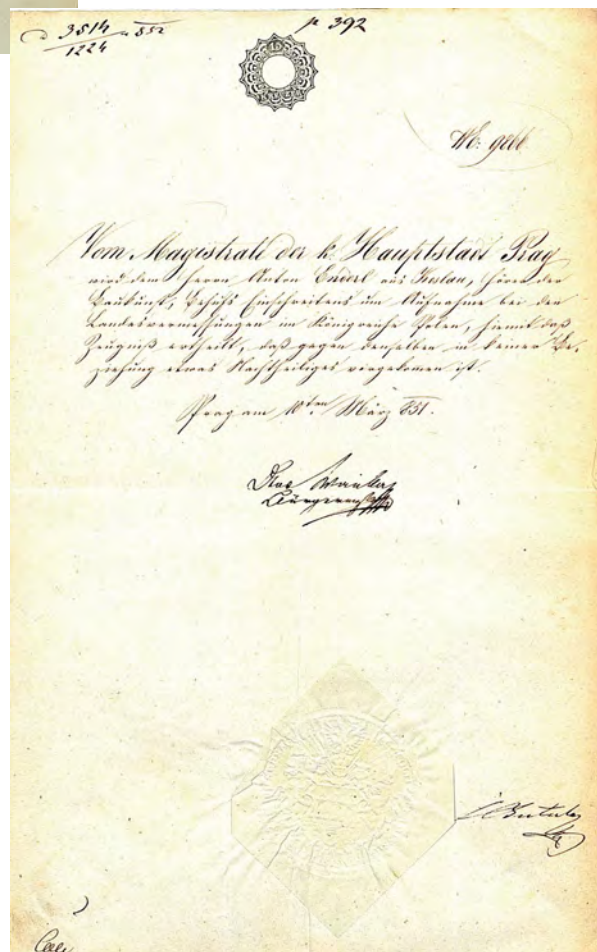 3514
1224
852
p 392
Vom Magistrate der k. Hauptstadt Prag
wird dem Herrn Anton Enderl aus Kieslau, Hörer der
Baukunst, Behufs Einschreitens um Aufnahme bei den
Landesvermessungen im Königreiche Polen, hiemit das
Zeugniß ertheilt, daß gegen denselben in keiner Be-
ziehung etwas Nachtheiliges vorgekomen ist.
Prag am 10ten März 851.